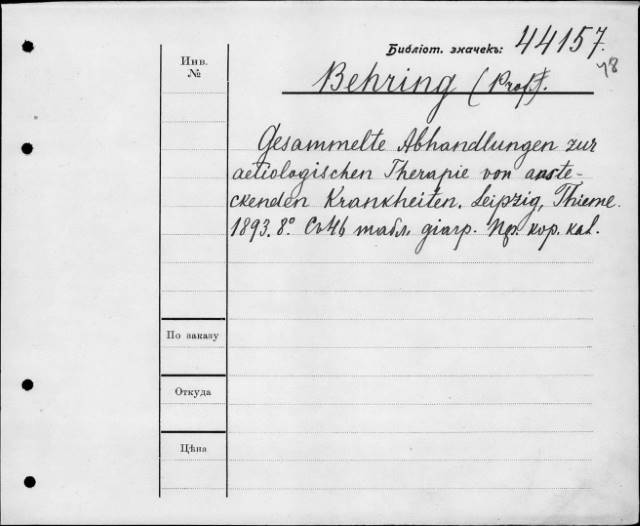 Библіот. значекъ: 44157.
48
Инв.
№
Behring (Prof).
Gesammelte Abhandlungen zur
aetiologischen Therapie von anste-
ckenden Krankheiten. Leipzig, Thieme.
1893. 8° Съ табл. діагр. кор. kal.
По заказу
Откуда
Цѣна